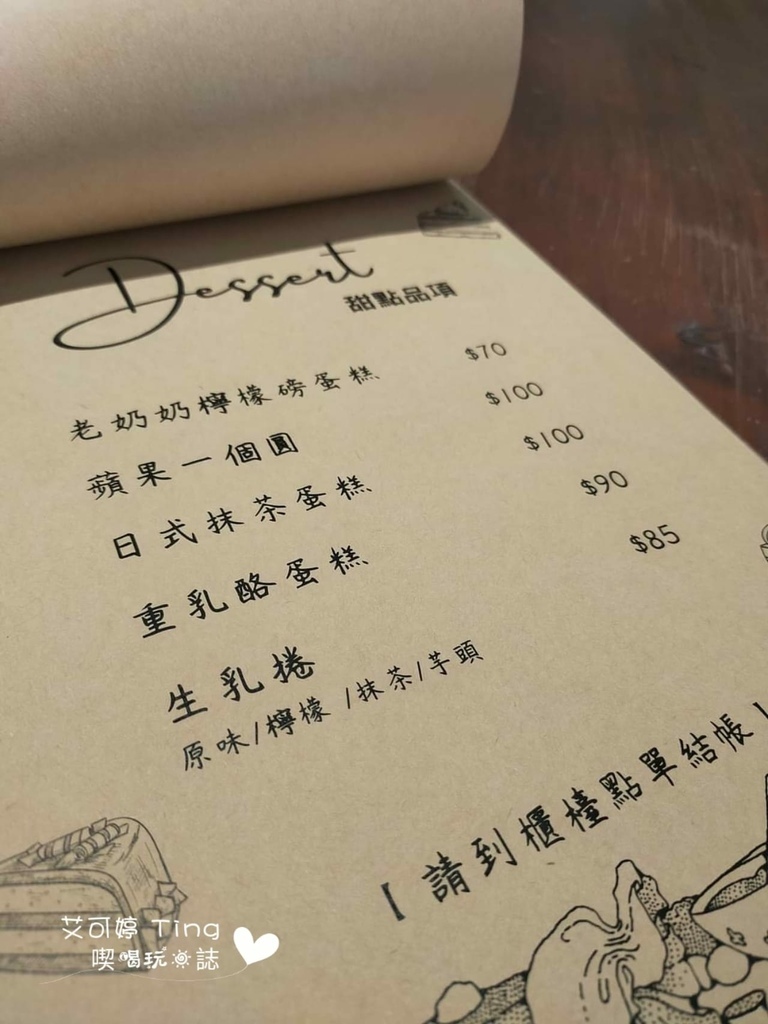 Dessert
甜點品項
老奶奶檸檬磅蛋糕 $70
蘋果一個圓 $100
日式抹茶蛋糕 $100
重乳酪蛋糕 $90
生乳捲 $85
原味/檸檬/抹茶/芋頭
【請到櫃檯點單結帳】
艾可婷 Ting
喫喝玩誌